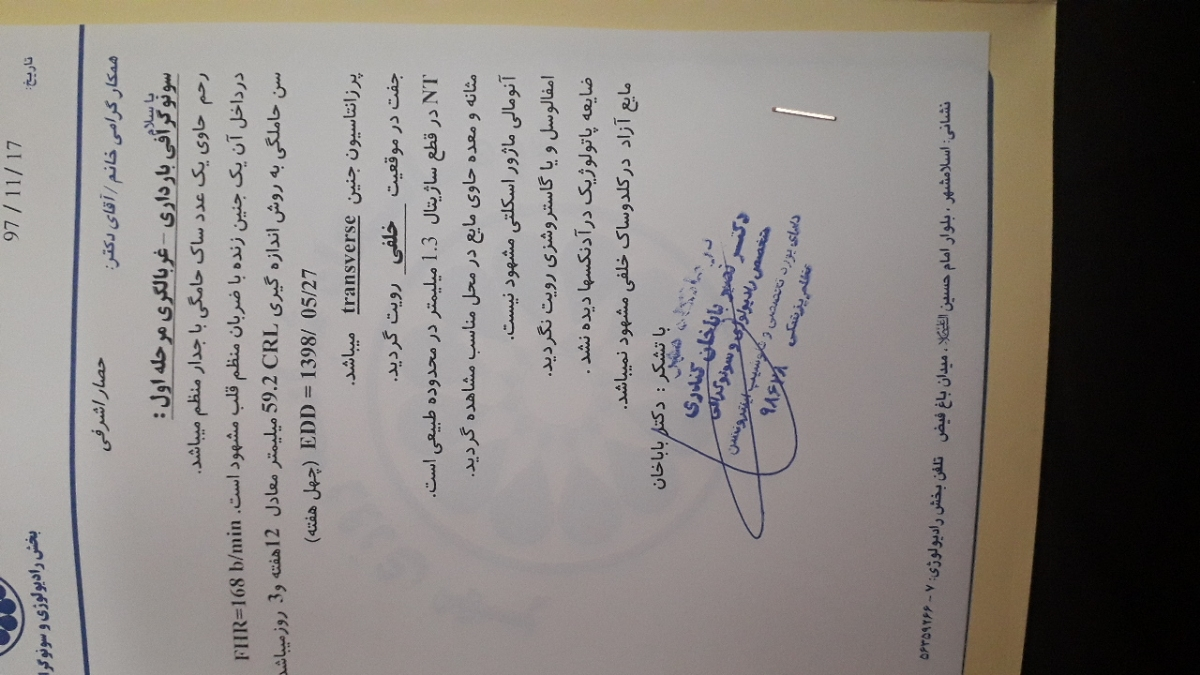 بخش رادیولوژی و سونوگرا
تاریخ:
97/11/17
همکار گرامی خانم / آقای دکتر:
حصار اشرفی
با سلام
سونوگرافی بارداری – غربالگری مرحله اول :
رحم حاوی یک عدد ساک حاملگی با جدار منظم میباشد.
درداخل آن یک جنین زنده با ضربان منظم قلب مشهود است. FHR=168 b/min
سن حاملگی به روش اندازه گیری CRL 59.2 میلیمتر معادل 12هفته و3 روزمیباشد
EDD = 1398/ 05/27 (چهل هفته)
پرزانتاسیون جنین transverse میباشد.
جفت در موقعیت خلفی رویت گردید.
NT در قطع ساژیتال 1.3 میلیمتر در محدوده طبیعی است.
مثانه و معده حاوی مایع در محل مناسب مشاهده گردید.
آنومالی ماژور اسکلتی مشهود نیست.
امفالوسل و یا گاستروشزی رویت نگردید.
ضایعه پاتولوژیک درآدنکسها دیده نشد .
مایع آزاد درکلدوساک خلفی مشهود نمیباشد.
با تشکر : دکتر باباخان
دکتر نصیر باباخان کناری
متخصص رادیولوژی و سونوگرافی
دارای بورد تخصصی و
۹۸۶۲۸
نشانی: اسلامشهر ، بلوار امام حسین ، میدان باغ فیض تلفن بخش رادیولوژی: ۷ - ۵۶۳۵۹۲۶۶